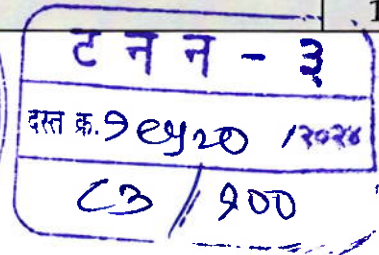 1
ट न न - ३
दस्त क्र. १७५२० /२०२४
८३ / १००